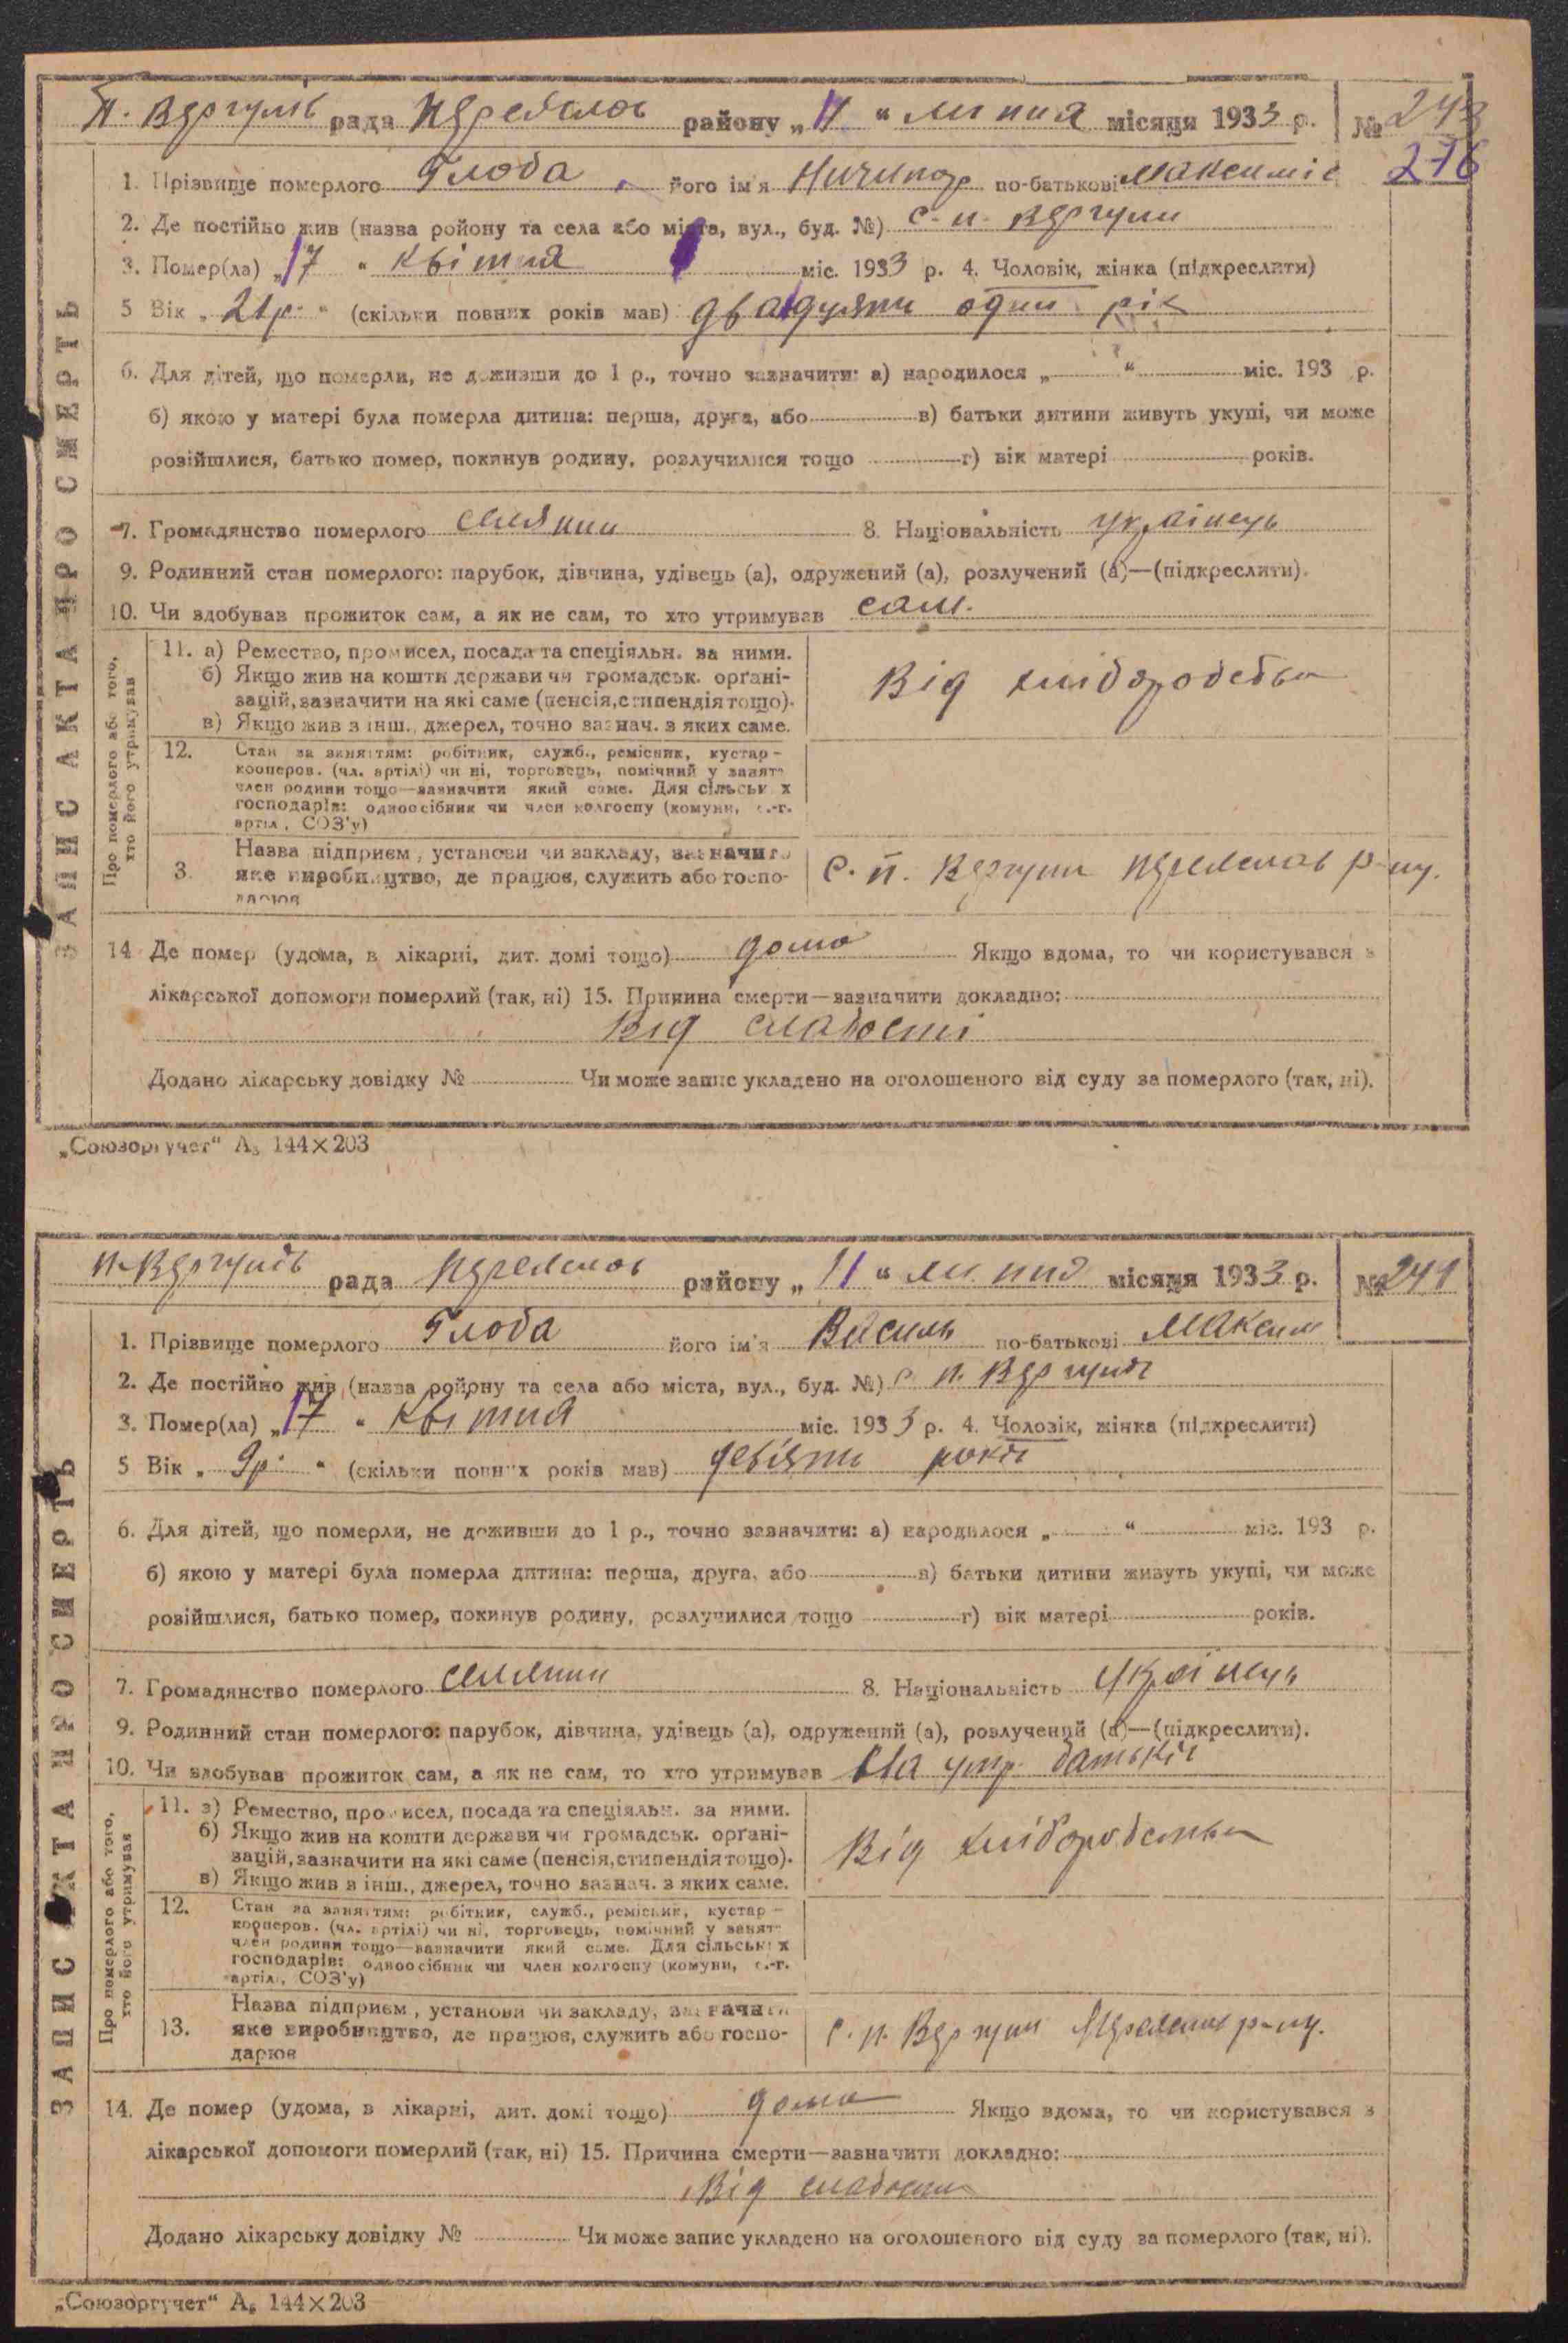 П. Вергунів рада Переяслов району „11“ липня місяця 1933 р. № 243
276
1. Прізвище померлого Глоба його ім'я Ничипор по-батькові Максимів
2. Де постійно жив (назва ройону та села або міста, вул., буд. №) с. п. Вергуни
3. Помер(ла) „17“ квітня міс. 1933 р. 4. Чоловік, жінка (підкреслити)
5 Вік „21 р.“ (скільки повних років мав) двадцять один рік
6. Для дітей, що померли, не доживши до 1 р., точно зазначити: а) народилося „ “ міс. 193 р.
б) якою у матері була померла дитина: перша, друга, або в) батьки дитини живуть укупі, чи може
розійшлися, батько помер, покинув родину, розлучилися тощо г) вік матері років.
7. Громадянство померлого селянин 8. Національність українець
9. Родинний стан померлого: парубок, дівчина, удівець (а), одружений (а), розлучений (а)—(підкреслити).
10. Чи здобував прожиток сам, а як не сам, то хто утримував сам.
ЗАПИС АКТА ПРО СМЕРТЬ
Про померлого або того, хто його утримував
11. а) Ремество, промисел, посада та спеціяльн. за ними.
б) Якщо жив на кошти держави чи громадськ. орґані-
зацій, зазначити на які саме (пенсія, стипендія тощо).
в) Якщо жив з інш., джерел, точно зазнач. з яких саме.
Від хліборобства
12. Стан за заняттям: робітник, служб., ремісник, кустар -
кооперов. (чл. артілі) чи ні, торговець, помічний у занят-
член родини тощо—зазначити який саме. Для сільських
господарів: одноосібник чи член колгоспу (комуни, с.-г.
артіл., СОЗ'у)
3. Назва підприєм., установи чи закладу, зазначити
яке виробництво, де працює, служить або госпо-
дарює
С. П. Вергуни Переяслов р-ну.
14. Де помер (удома, в лікарні, дит. домі тощо) дома Якщо вдома, то чи користувався з
лікарської допомоги померлий (так, ні) 15. Причина смерти—зазначити докладно:
Від слабості
Додано лікарську довідку № Чи може запис укладено на оголошеного від суду за померлого (так, ні).
„Союзоргучет“ А₅ 144×203
п. Вергунів рада Переяслов району „11“ липня місяця 1933 р. № 241
1. Прізвище померлого Глоба його ім'я Василь по-батькові Максим
2. Де постійно жив (назва ройону та села або міста, вул., буд. №) с. п. Вергунів
3. Помер(ла) „17“ квітня міс. 1933 р. 4. Чоловік, жінка (підкреслити)
5 Вік „9 р.“ (скільки повних років мав) девіять років
6. Для дітей, що померли, не доживши до 1 р., точно зазначити: а) народилося „ “ міс. 193 р.
б) якою у матері була померла дитина: перша, друга, або в) батьки дитини живуть укупі, чи може
розійшлися, батько помер, покинув родину, розлучилися тощо г) вік матері років.
7. Громадянство померлого селянин 8. Національність українець
9. Родинний стан померлого: парубок, дівчина, удівець (а), одружений (а), розлучений (а)—(підкреслити).
10. Чи здобував прожиток сам, а як не сам, то хто утримував На утр. батьків
ЗАПИС АКТА ПРО СМЕРТЬ
Про померлого або того, хто його утримував
11. а) Ремество, промисел, посада та спеціяльн. за ними.
б) Якщо жив на кошти держави чи громадськ. орґані-
зацій, зазначити на які саме (пенсія, стипендія тощо).
в) Якщо жив з інш., джерел, точно зазнач. з яких саме.
Від хліборобства
12. Стан за заняттям: робітник, служб., ремісник, кустар -
кооперов. (чл. артілі) чи ні, торговець, помічний у занят-
член родини тощо—зазначити який саме. Для сільських
господарів: одноосібник чи член колгоспу (комуни, с.-г.
артіл., СОЗ'у)
13. Назва підприєм., установи чи закладу, зазначити
яке виробництво, де працює, служить або госпо-
дарює
с. п. Вергуни Переяслов р-ну.
14. Де помер (удома, в лікарні, дит. домі тощо) дома Якщо вдома, то чи користувався з
лікарської допомоги померлий (так, ні) 15. Причина смерти—зазначити докладно:
Від слабости
Додано лікарську довідку № Чи може запис укладено на оголошеного від суду за померлого (так, ні).
„Союзоргучет“ А₅ 144×203